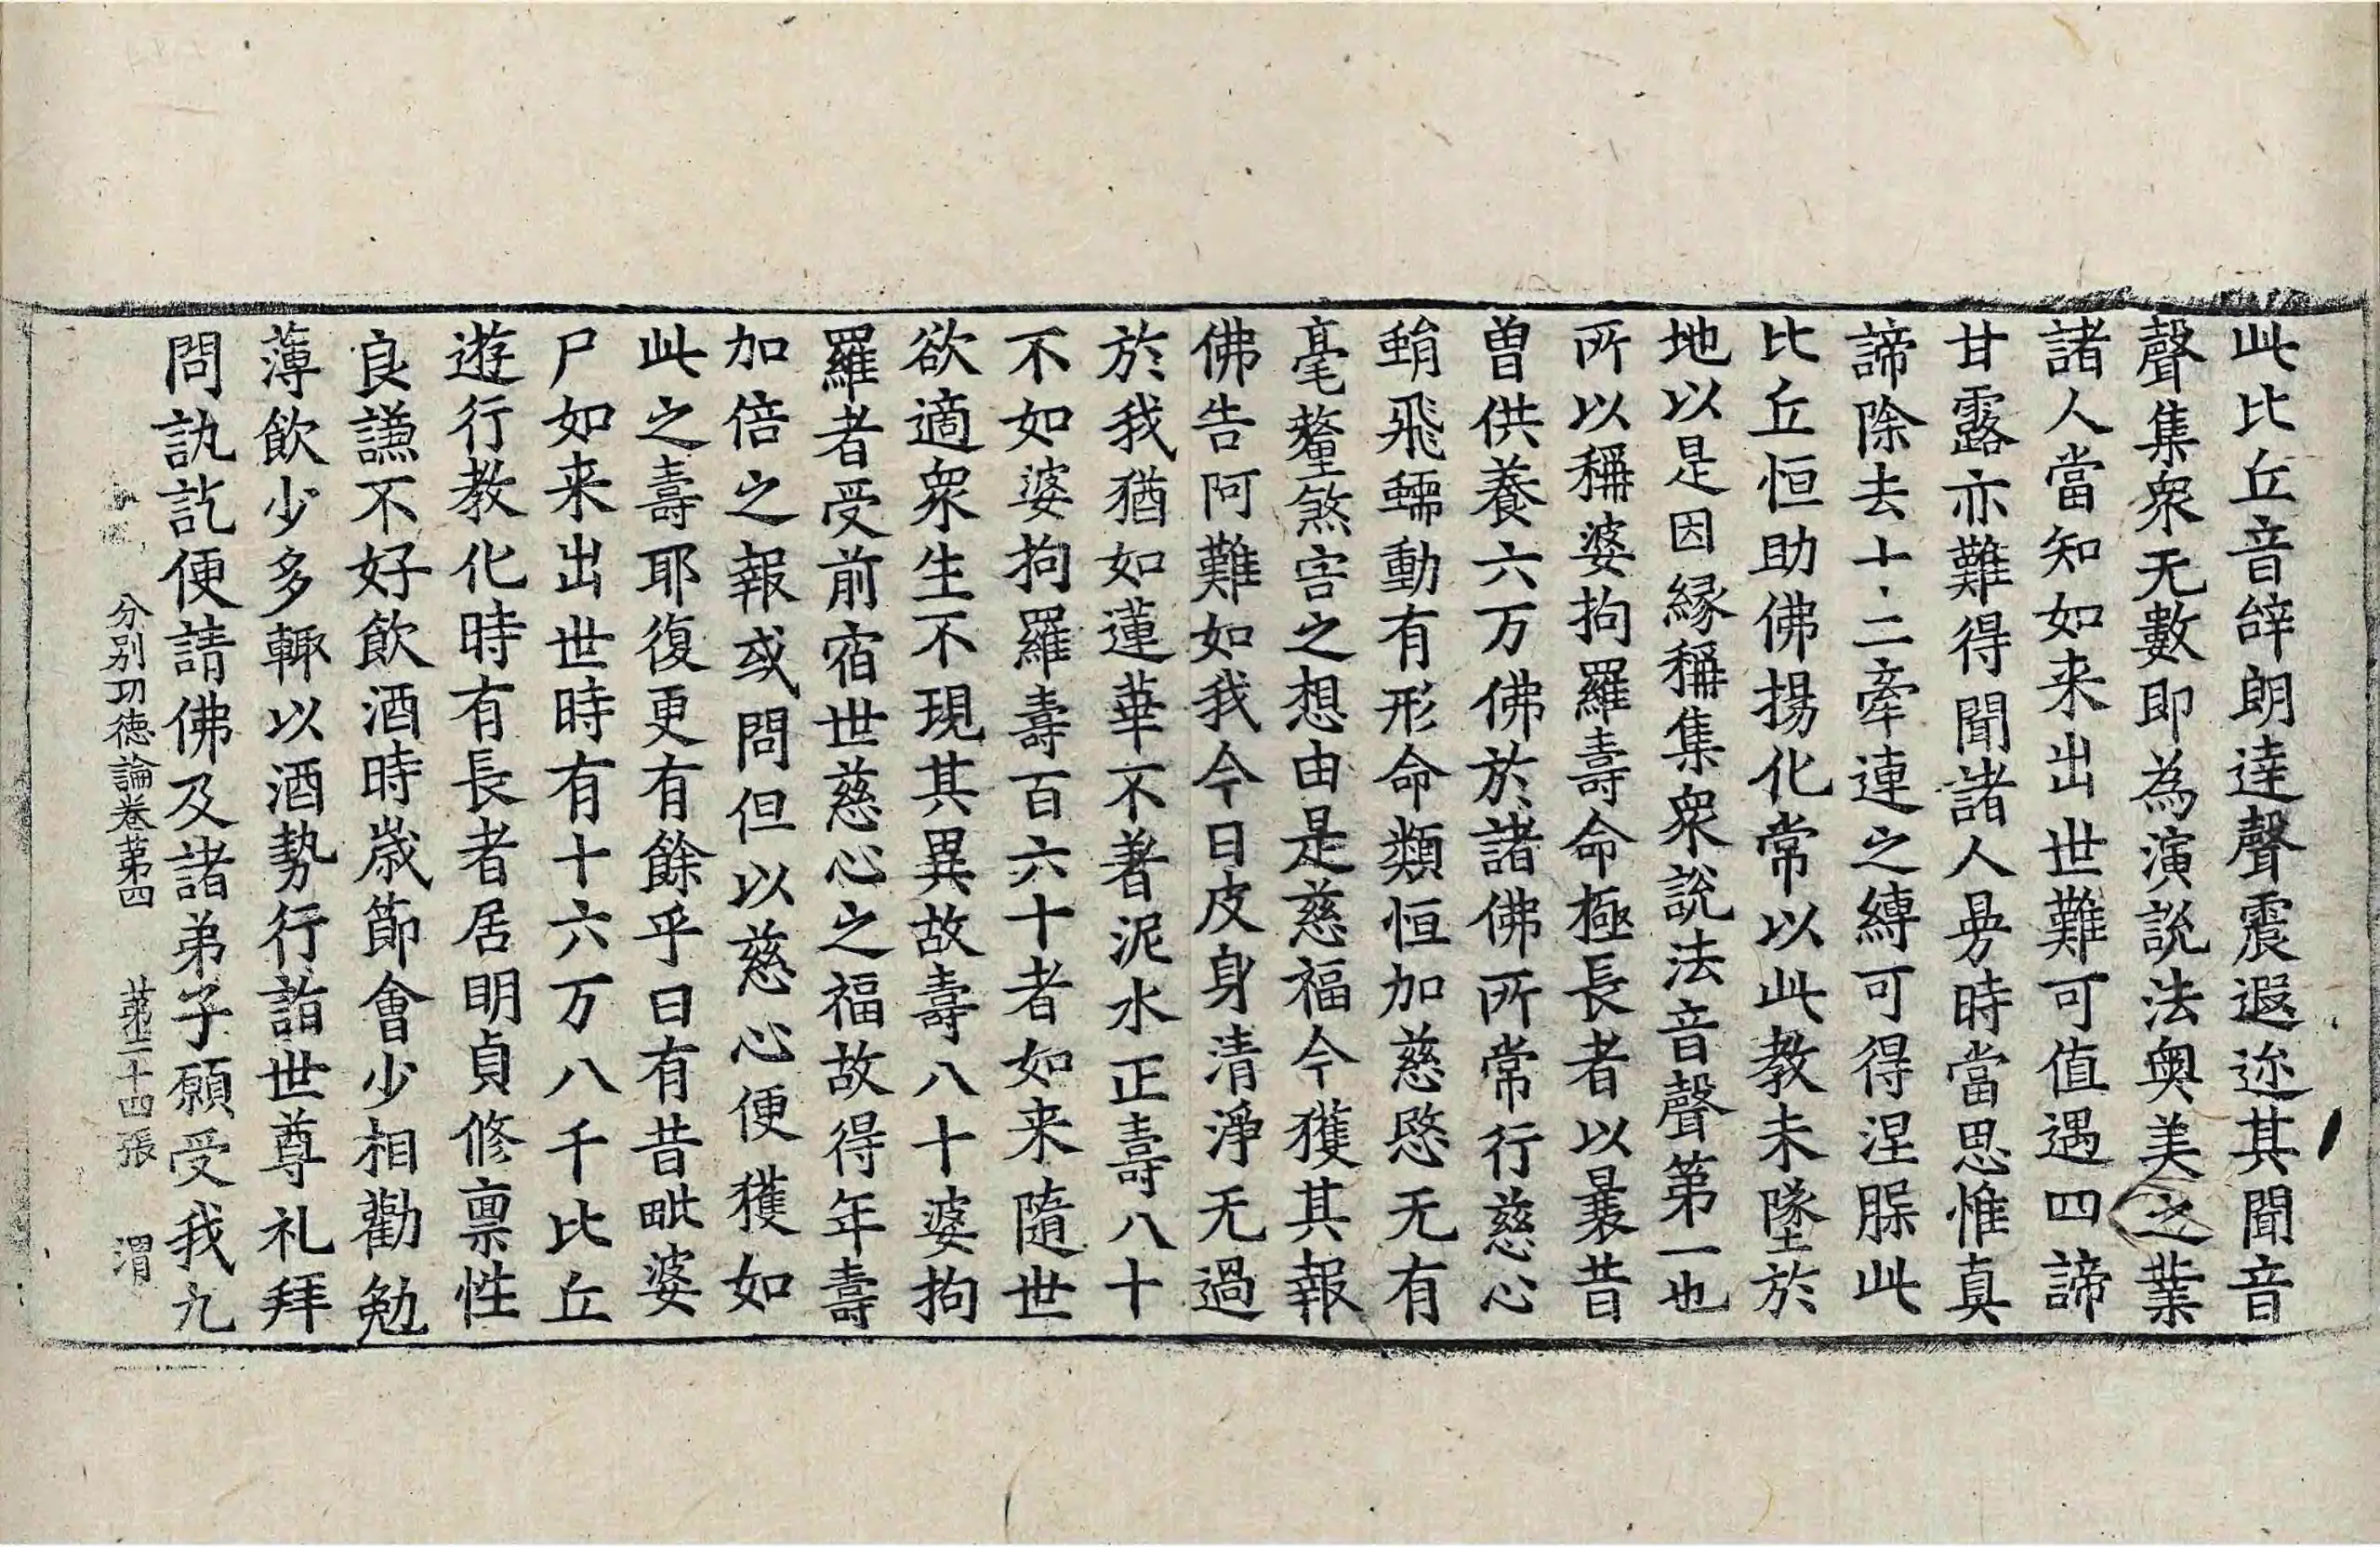 此比丘音辭朗達聲震遐迩其聞音
聲集衆无數即為演說法奧美之業
諸人當知如来出世難可值遇四諦
甘露亦難得聞諸人㫄時當思惟真
諦除去十二牽連之縛可得涅䐁此
比丘恒助佛揚化常以此教未墜於
地以是因縁稱集衆說法音聲第一也
所以稱婆拘羅壽命極長者以曩昔
曽供養六万佛於諸佛所常行慈心
蜎飛蠕動有形命類恒加慈愍无有
毫釐煞害之想由是慈福今獲其報
佛告阿難如我今日皮身清淨无過
於我猶如蓮華不著泥水正壽八十
不如婆拘羅壽百六十者如来隨世
欲適衆生不現其異故壽八十婆拘
羅者受前宿世慈心之福故得年壽
加倍之報或問但以慈心便獲如
此之壽耶復更有餘乎曰有昔毗婆
尸如来出世時有十六万八千比丘
遊行教化時有長者居明貞修稟性
良謙不好飲酒時歲節會少相勸勉
薄飲少多輙以酒勢行詣世尊礼拜
問訊訖便請佛及諸弟子願受我九
分別功德論卷第四 第二十四張 渭